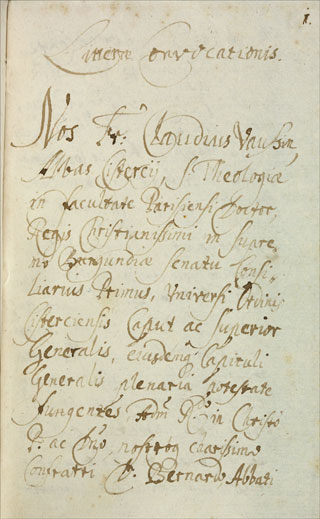 1.
Litteræ Convocationis.
Nos Fr. Claudius Vaussin,
Abbas Cistercij, S. Theologiæ
in facultate Parisiensi Doctor,
Regis Christianissimi in supre,
mo Burgundiæ Senatu Consi,
liarius Primus, Universi Ordinis
Cisterciensis Caput ac Superior
Generalis, eiusdemq Capituli
Generalis plenaria potestate
fungentes Adm Rdo in Christo
P. ac Dno, nostroq charissimo
Confratri D. Bernardo Abbati